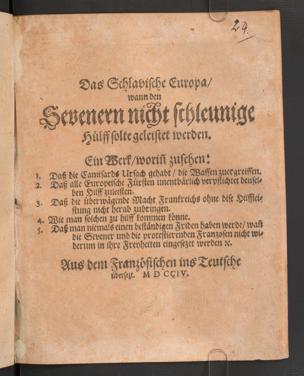 24.
Das Schlavische Europa/
wann den
Sevenern nicht schleunige
Hülff solte geleistet werden.
Ein Werk/worin zusehen:
1. Daß die Camisards Ursach gehabt / die Waffen zuergreiffen.
2. Daß alle Europeische Fürsten unentbärlich verpflichtet densel-
ben Hilff zuleisten.
3. Daß die überwägende Macht Frankreichs ohne dise Hilfflei-
stung nicht herab zubringen.
4. Wie man solchen zu hilff kommen könne.
5. Daß man niemals einen beständigen Friden haben werde/ wañ
die Sevener und die protestierenden Franzosen nicht wi-
derum in ihre Freyheiten eingesetzet werden ꝛc.
Aus dem Französischen ins Teutsche
übersetzt. MDCCIV.